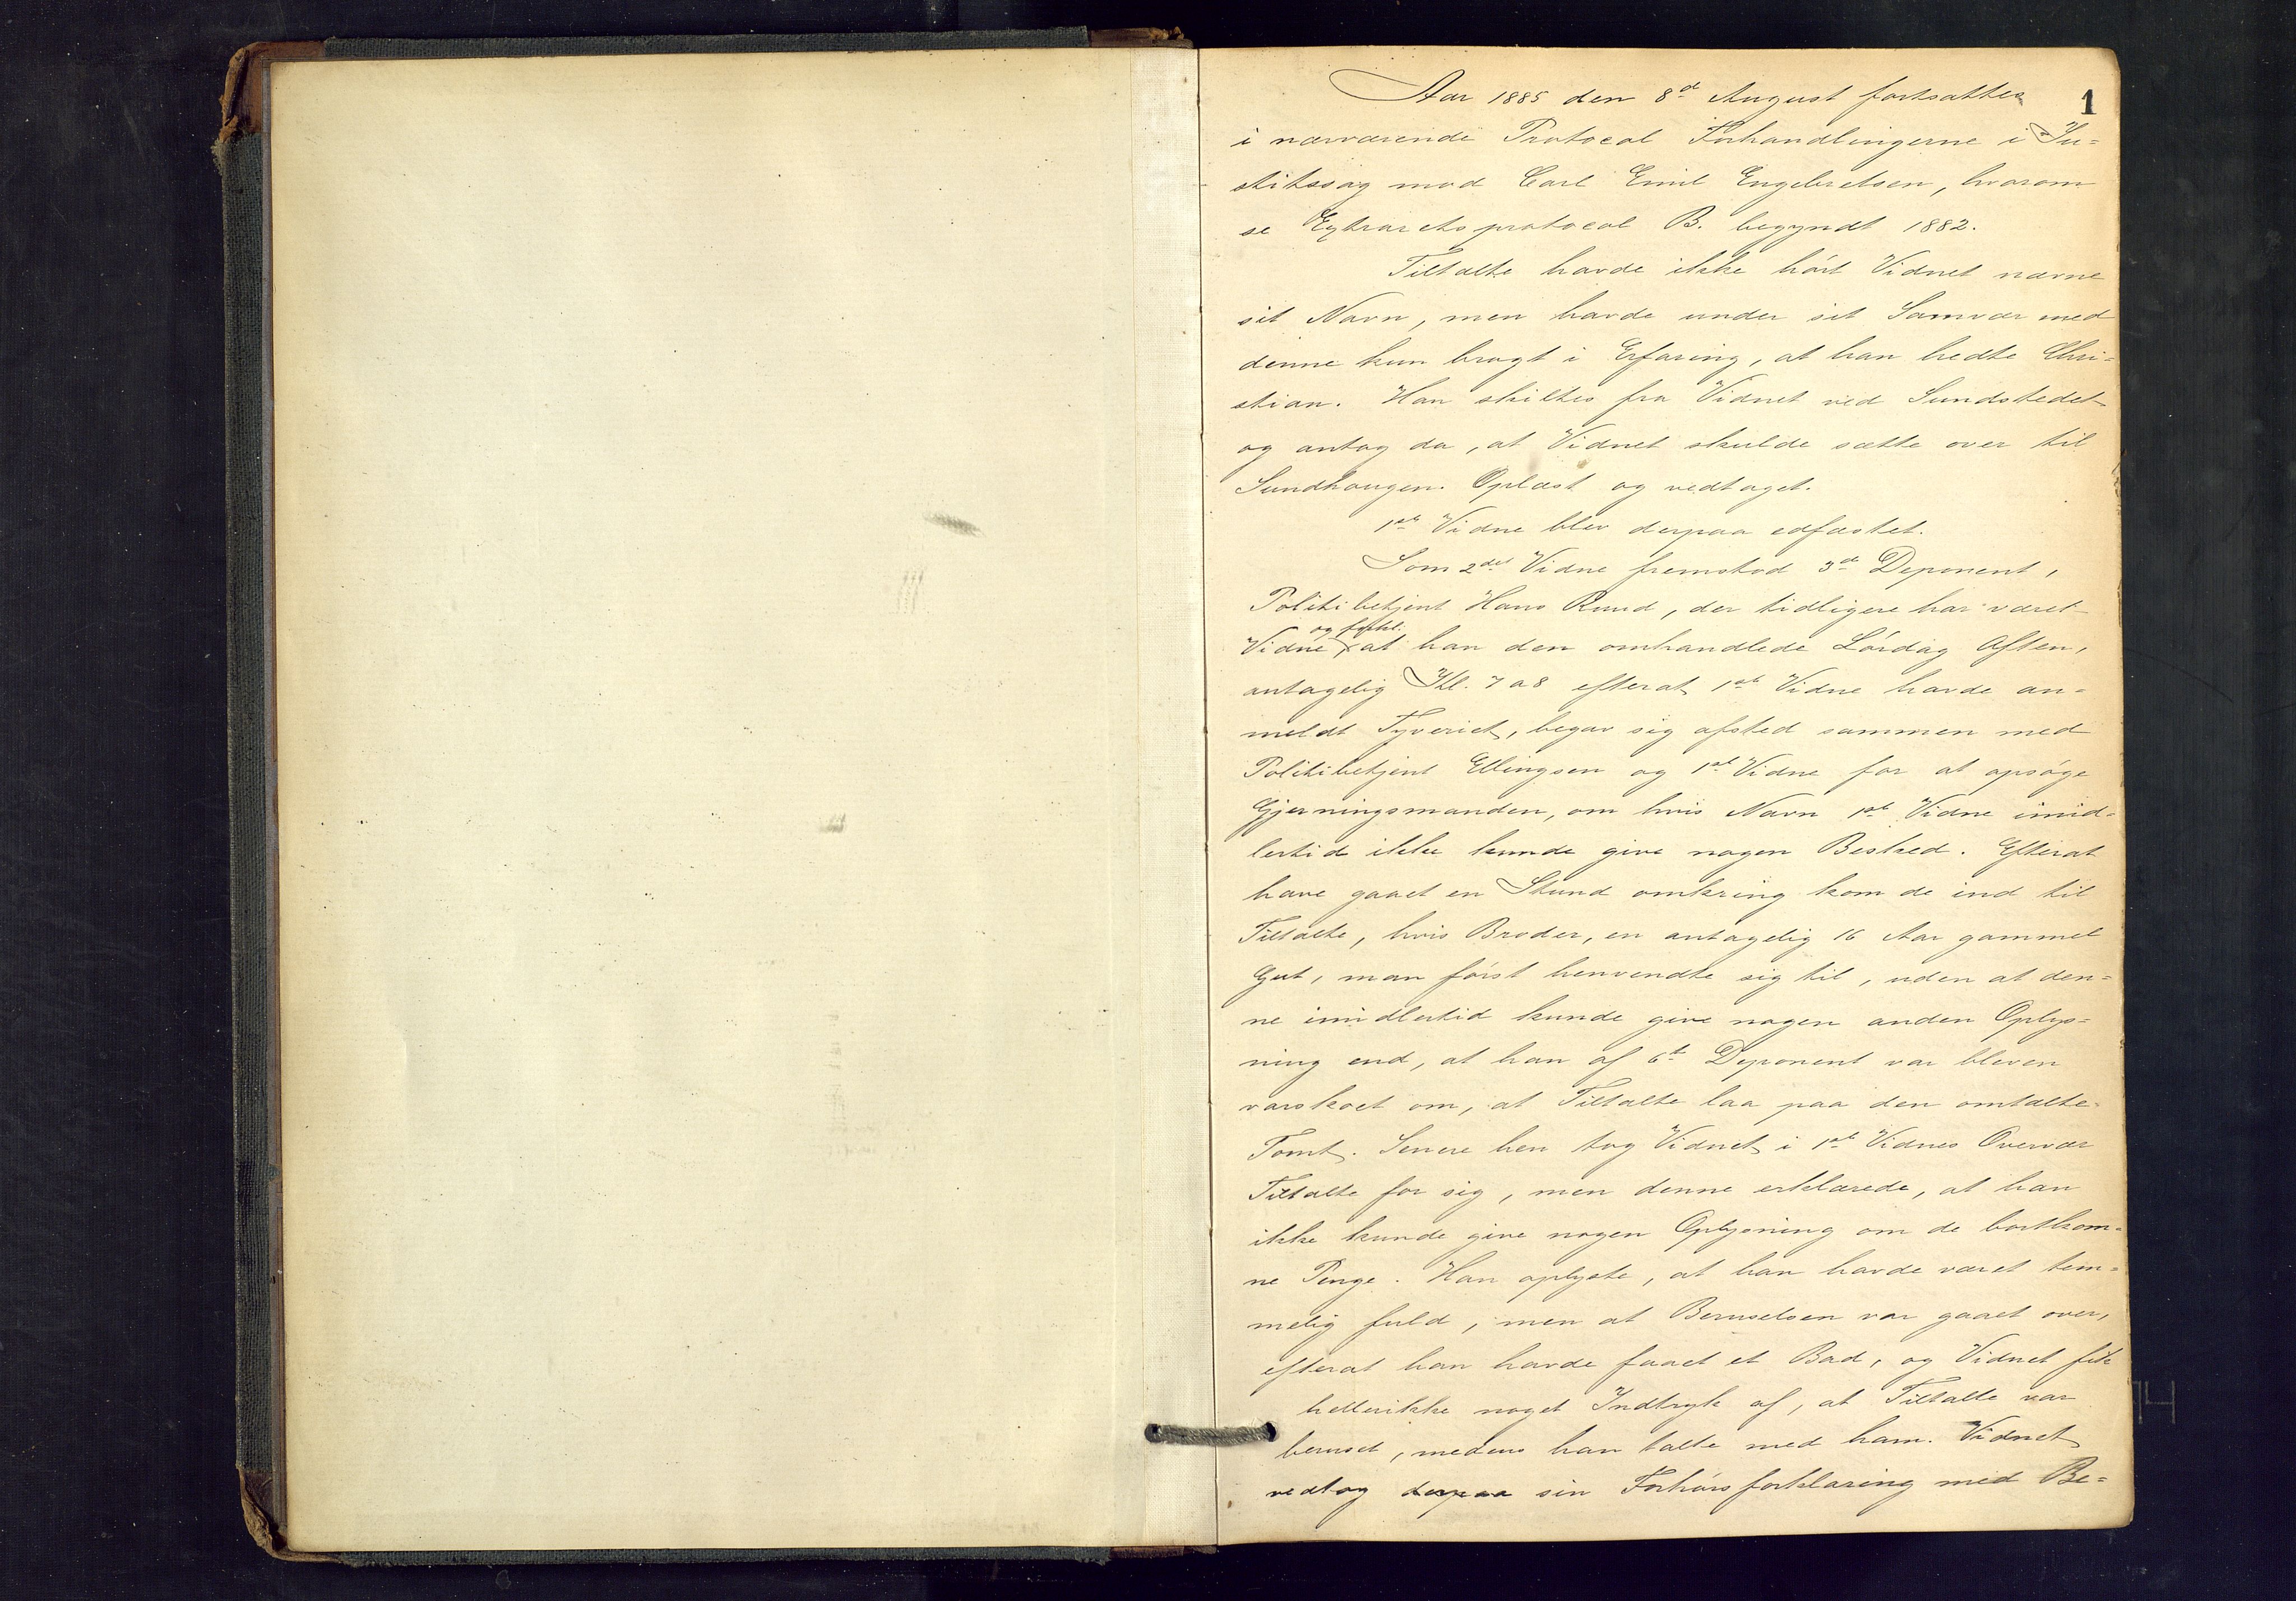 1
Aar 1885 den 8d August fortsattes
i nærværende Protocol Forhandlingerne i Ju=
stitssag mod Carl Emil Engebretsen, hvorom
se Extraretsprotocol B. begyndt 1882.
Tiltalte havde ikke hørt Vidnet nævne
sit Navn, men havde under sit Samvær med
denne kun bragt i Erfaring, at han hedte Chri=
stian. Han skiltes fra Vidnet ved Sundstedet
og antog da, at Vidnet skulde sætte over til
Sundhaugen. Oplæst og vedtaget.
1ste Vidne blev derpaa edfæstet.
Som 2det Vidne fremstod 3d Deponent,
Politibetjent Hans Ruud, der tidligere har været
og forkl.
Vidne, at han den omhandlede Lørdag Aften,
antagelig Kl. 7 a 8 efterat 1ste Vidne havde an=
meldt Tyveriet, begav sig afsted sammen med
Politibetjent Ellingsen og 1ste Vidne for at opsøge
Gjerningsmanden, om hvis Navn 1ste Vidne imid=
lertid ikke kunde give nogen Besked. Efterat
have gaaet en Stund omkring kom de ind til
Tiltalte, hvis Broder, en antagelig 16 Aar gammel
Gut, man først henvendte sig til, uden at den=
ne imidlertid kunde give nogen anden Oplys=
ning end, at han af 6te Deponent var bleven
varskoet om, at Tiltalte laa paa den omtalte
Tomt. Senere hen tog Vidnet i 1ste Vidnes Overvær
Tiltalte for sig, men denne erklærede, at han
ikke kunde give nogen Oplysning om de bortkom=
ne Penge. Han oplyste, at han havde været tem=
melig fuld, men at Beruselsen var gaaet over,
efterat han havde faaet et Bad, og Vidnet fik
hellerikke noget Indtryk af, at Tiltalte var
beruset, medens han talte med ham. Vidnet
vedtog derpaa sin Forhørsforklaring med Be=